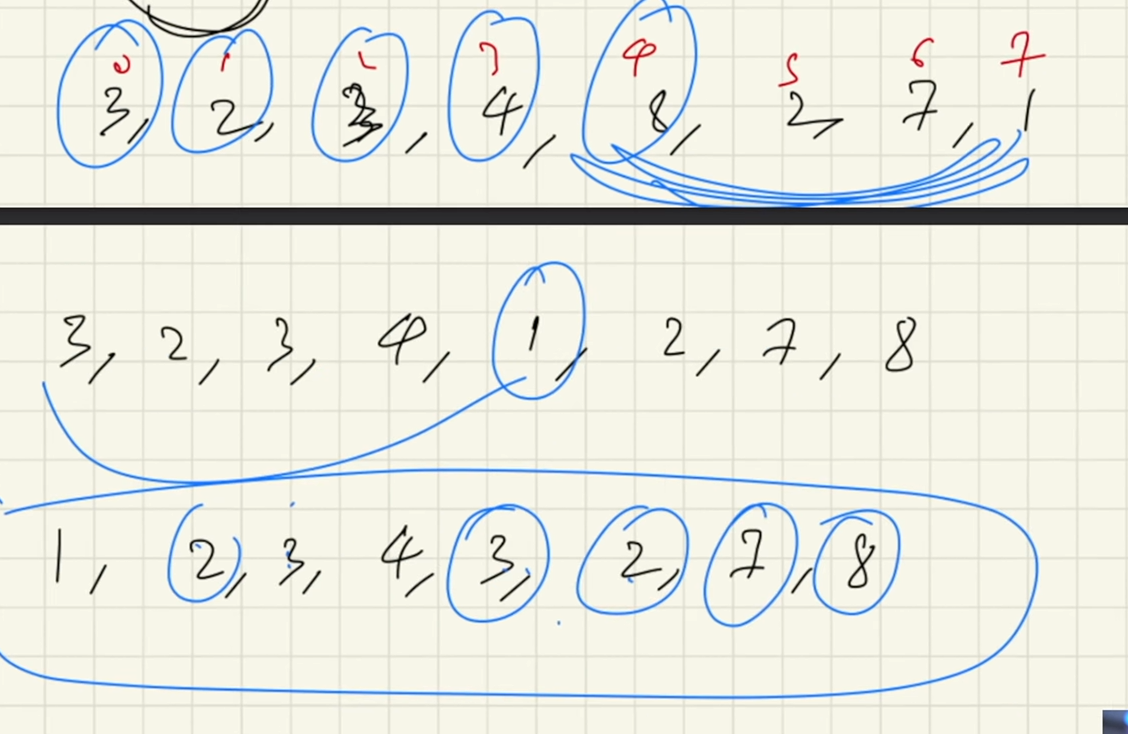 0 1 2 3 4 5 6 7
3, 2, 3, 4, 8, 2, 7, 1
3, 2, 3, 4, 1, 2, 7, 8
1, 2, 3, 4, 3, 2, 7, 8